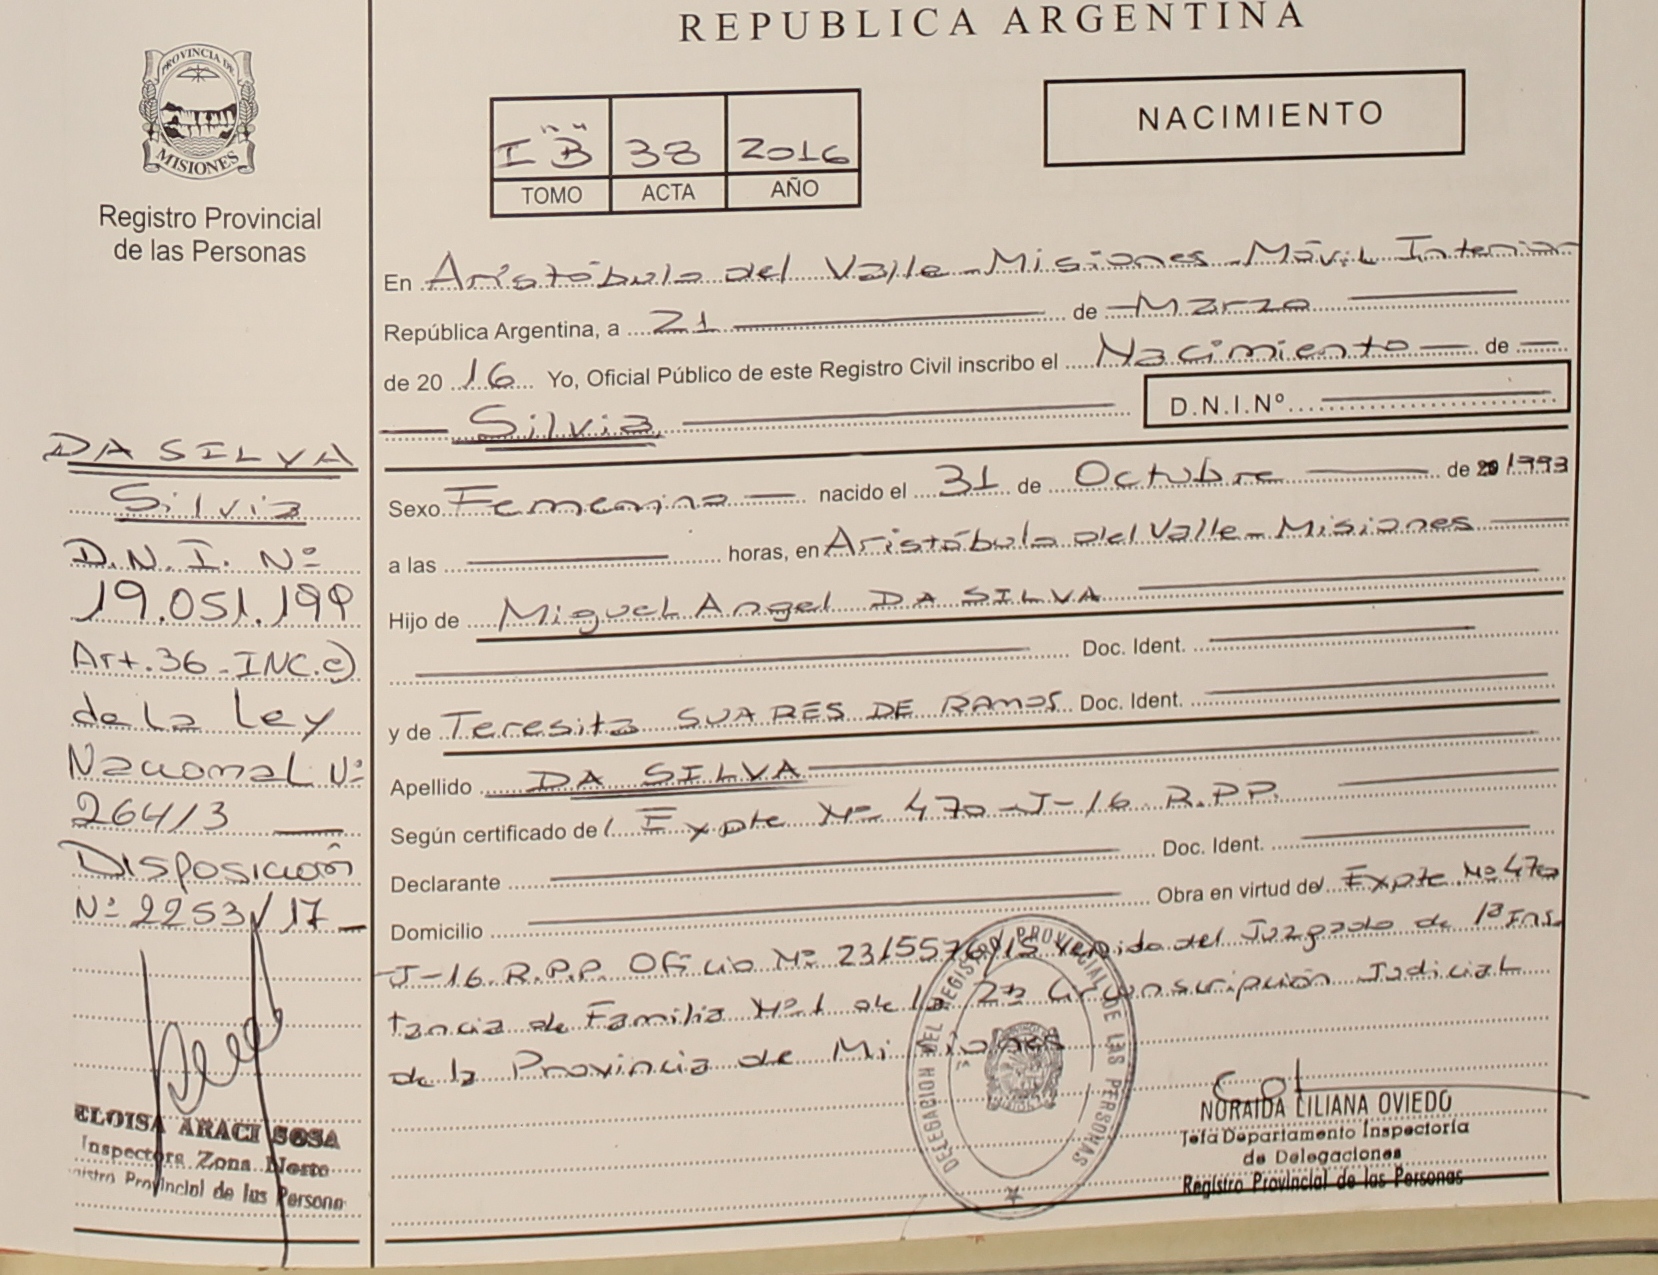 REPUBLICA ARGENTINA
PROVINCIA DE
MISIONES
Registro Provincial
de las Personas
I "B" 38 2016
TOMO ACTA AÑO
NACIMIENTO
En Aristóbulo del Valle - Misiones - Móvil Interior
República Argentina, a 21 de Marzo
de 20 16 Yo, Oficial Público de este Registro Civil inscribo el Nacimiento de
Silvia
D.N.I.Nº
Sexo Femenino nacido el 31 de Octubre de 1993
a las horas, en Aristóbulo del Valle - Misiones
Hijo de Miguel Angel DA SILVA
Doc. Ident.
y de Teresita SUARES DE RAMOS Doc. Ident.
Apellido DA SILVA
Según certificado de l Expte Nº 470-J-16 R.P.P.
Declarante Doc. Ident.
Domicilio Obra en virtud del Expte Nº 470
J-16. R.P.P. Oficio Nº 2315576/15 venido del Juzgado de 1ª Ins
tancia de Familia Nº 1 de la 2ª Circunscripción Judicial
de la Provincia de Misiones
DA SILVA
Silvia
D.N.I. Nº
19.051.199
Art. 36 - INC. c)
de La Ley
Nacional Nº
26413
Disposición
Nº 2253/17
ELOISA ARACI SOSA
Inspectora Zona Norte
Provincial de las Persona
DELEGACION DEL REGISTRO PROVINCIAL DE LAS PERSONAS
NORAIDA LILIANA OVIEDO
Jefa Departamento Inspectoría
de Delegaciones
Registro Provincial de las Personas